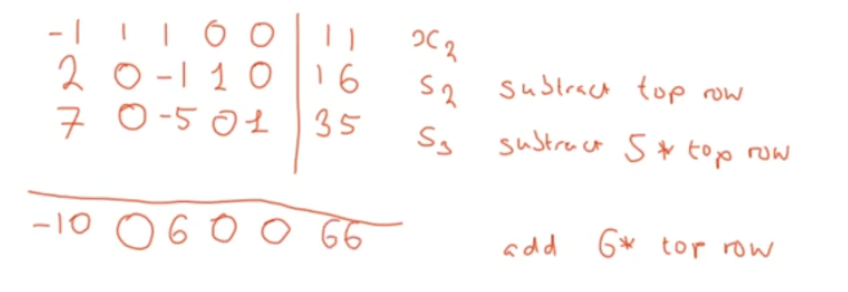 -1 1 1 0 0 | 11 x2
2 0 -1 1 0 | 16 s2 subtract top row
7 0 -5 0 1 | 35 s3 subtract 5 * top row
-10 0 6 0 0 66 add 6* top row